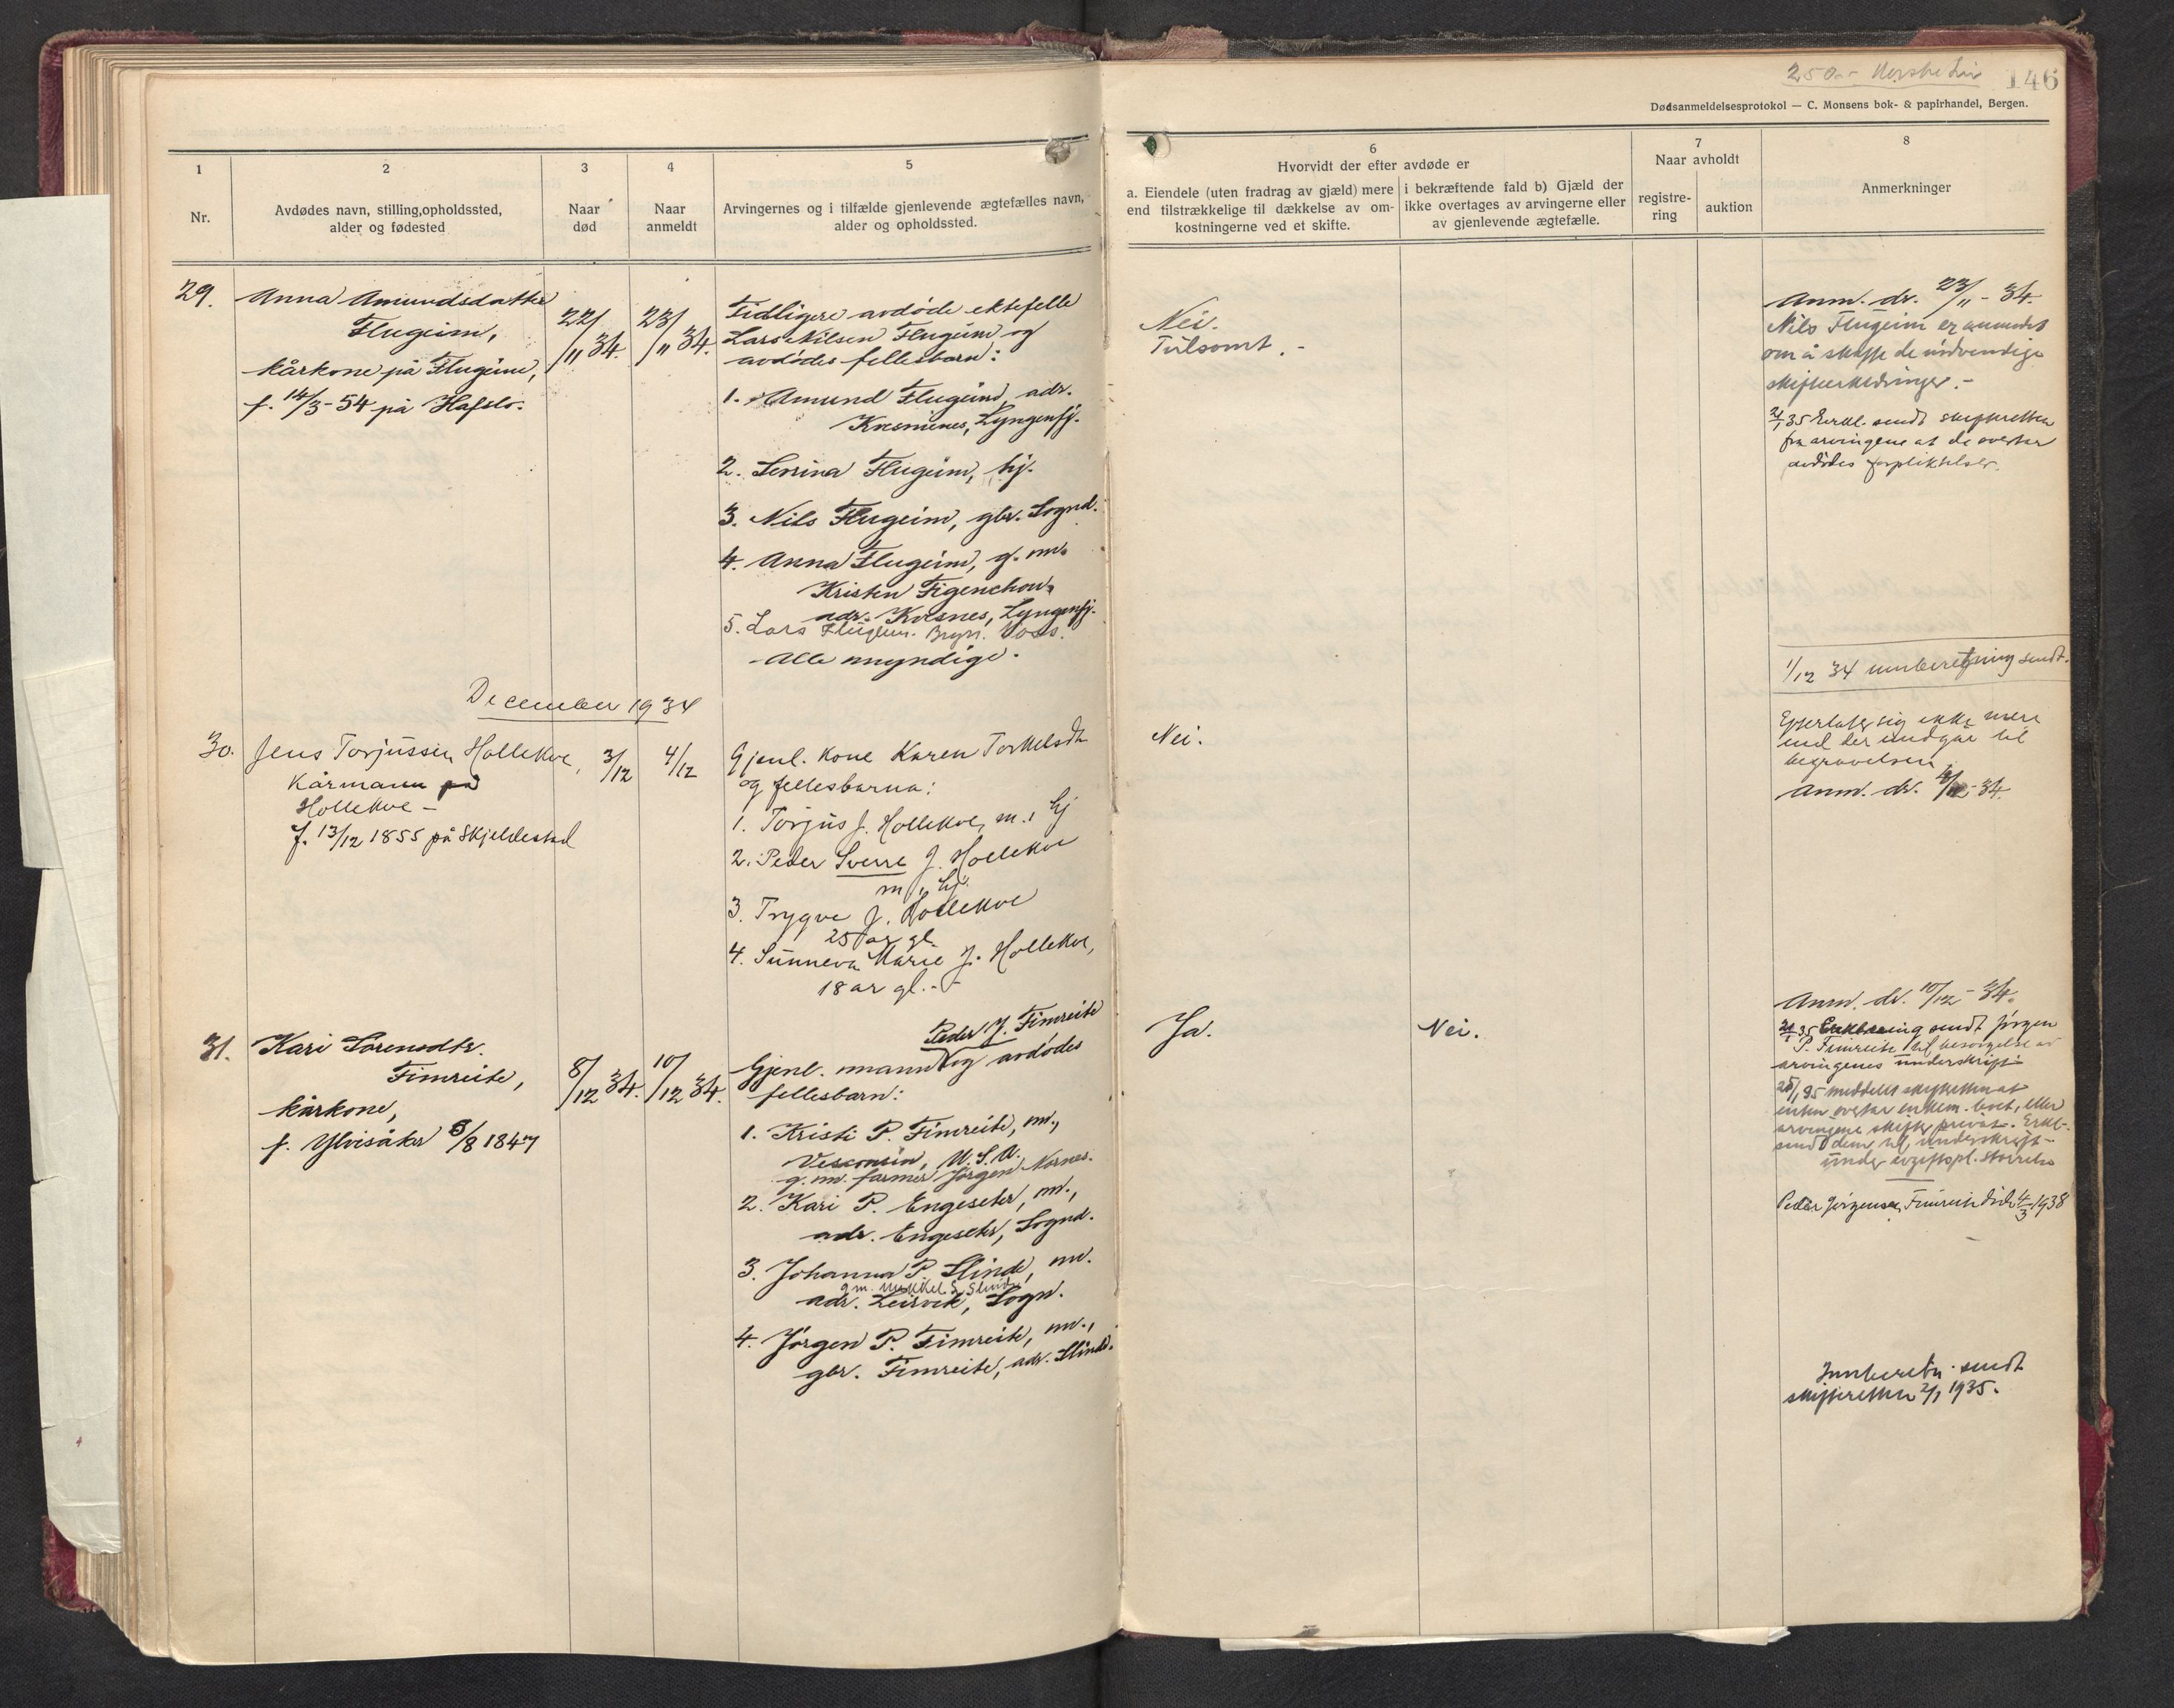 250.- Norske Liv
146
Dødsanmeldelsesprotokol — C. Monsens bok- & papirhandel, Bergen.
1
Nr.
2
Avdødes navn, stilling, opholdssted,
alder og fødested
3
Naar
død
4
Naar
anmeldt
5
Arvingernes og i tilfælde gjenlevende ægtefælles navn,
alder og opholdssted.
6
Hvorvidt der efter avdøde er
a. Eiendele (uten fradrag av gjæld) mere
end tilstrækkelige til dækkelse av om-
kostningerne ved et skifte.
i bekræftende fald b) Gjæld der
ikke overtages av arvingerne eller
av gjenlevende ægtefælle.
7
Naar avholdt
registre-
ring
auktion
8
Anmerkninger
29.
Anna Amundsdatter
Flugeim,
kårkone på Flugeim,
f. 14/3-54 på Hafslo.
22/11 34.
23/11 34.
Tidligere avdøde ektefelle
Lars Nilsen Flugeim og
avdødes fellesbarn:
1. Amund Flugeim, adr.
Lyngenfj.
2. Serina Flugeim, hj.
3. Nils Flugeim, gbr. Sognd.
4. Anna Flugeim, g. m.
Kristen Figenchou,
adr. Kvesnes, Lyngenfj.
5. Lars Flugeim. Voss.
Alle myndige.
Nei.
Tilsomt.-
Anm. dr. 23/11-34.
Nils Flugeim er anmodet
om å skaffe de nødvendige
skifteerklæringer.-
2/1 35 Erkl. sendt skifteretten
fra arvingene at de overtar
avdødes forpliktelser.
1/12 34 innberetning sendt.
December 1934
30.
Jens Torjussen Hollekve,
Kårmann på
Hollekve -
f. 13/12 1855 på Skjeldestad
3/12
4/12
Gjenl. kone Karen Torkelsdtr
og fellesbarna:
1. Torjus J. Hollekve, m., hj
2. Peder Sverre J. Hollekve
m, hj.
3. Trygve J. Hollekve
25 år gl.
4. Sunneva Marie J. Hollekve,
18 år gl.-
Nei.
Efterlater sig ikke mere
end der medgår til
begravelsen
Anm. dr. 4/12-34.
31.
Kari Sørensdtr.
Fimreite,
kårkone,
f. Ylvisåker 8/8 1847
8/12 34.
10/12 34.
Peder J. Fimreite
Gjenl. mann og avdødes
fellesbarn:
1. Kristi P. Fimreite, m.,
Visconsin, U.S.A.
g.m. farmer Jørgen Nornes.
2. Kari P. Engeseter, m.,
adr. Engeseter, Sognd.
3. Johanna P. Slinde, m.
gm. Mikkel S. Slinde
adr. Leirvik, Sogn.
4. Jørgen P. Fimreite, m.,
gbr. Fimreite, adr. Slinde.
Ja.
Nei.
Anm. dr. 10/12-34.
2/1 35 Erklæring sendt Jørgen
P. Fimreite til besørgelse av
arvingenes underskrift
25/1 35 meddelt skifteretten at
enten overtar enkem. boet, eller
arvingene skifter privat. Erkl.
sendt dem til underskrift-
under avgiftspl. størrelse
Peder Jørgensen Fimreite død 4/3 1938
Innberetn. sendt
skifteretten 2/1 1935.